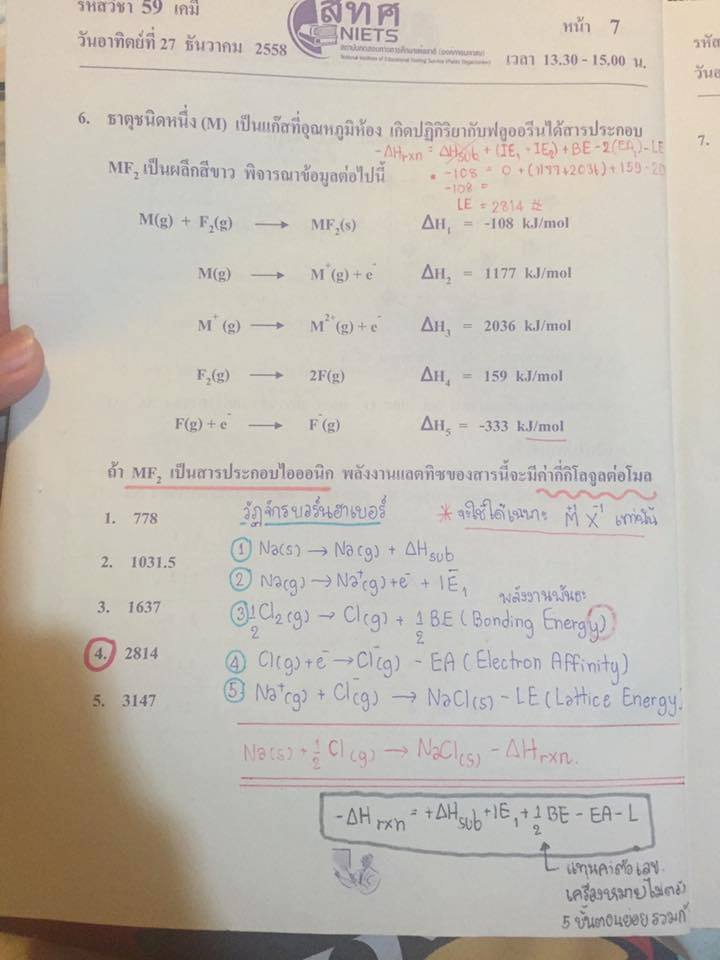 รหัสวิชา 59 เคมี
วันอาทิตย์ที่ 27 ธันวาคม 2558
สทศ
NIETS
สถาบันทดสอบทางการศึกษาแห่งชาติ (องค์การมหาชน)
National Institute of Educational Testing Service (Public Organization)
หน้า 7
เวลา 13.30 - 15.00 น.
รหัส
วันอ
7.
6. ธาตุชนิดหนึ่ง (M) เป็นแก๊สที่อุณหภูมิห้อง เกิดปฏิกิริยากับฟลูออรีนได้สารประกอบ
-ΔHrxn = ΔHsub + (IE₁ + IE₂) + BE - 2(EA₁) - LE
MF₂ เป็นผลึกสีขาว พิจารณาข้อมูลต่อไปนี้
-108 = 0 + (1177+2036) + 159 -
-108 =
LE = 2814 #
M(g) + F₂(g) → MF₂(s) ΔH₁ = -108 kJ/mol
M(g) → M⁺(g) + e⁻ ΔH₂ = 1177 kJ/mol
M⁺(g) → M²⁺(g) + e⁻ ΔH₃ = 2036 kJ/mol
F₂(g) → 2F(g) ΔH₄ = 159 kJ/mol
F(g) + e⁻ → F⁻(g) ΔH₅ = -333 kJ/mol
ถ้า MF₂ เป็นสารประกอบไอออนิก พลังงานแลตทิซของสารนี้จะมีค่ากี่กิโลจูลต่อโมล
1. 778
2. 1031.5
3. 1637
4. 2814
5. 3147
วัฏจักรบอร์นฮาเบอร์
* จะใช้ได้เฉพาะ M⁺ X⁻¹ เท่านั้น
① Na(s) → Na(g) + ΔHsub
② Na(g) → Na⁺(g) + e⁻ + IE₁
พลังงานพันธะ
③ ½Cl₂(g) → Cl(g) + ½BE (Bonding Energy)
④ Cl(g) + e⁻ → Cl⁻(g) - EA (Electron Affinity)
⑤ Na⁺(g) + Cl⁻(g) → NaCl(s) - LE (Lattice Energy)
Na(s) + ½Cl(g) → NaCl(s) - ΔHrxn.
-ΔHrxn = +ΔHsub + IE₁ + ½BE - EA - L
แทนค่าตัวเลข
เครื่องหมายไม่
5 ขั้นตอนย่อยรวมกั